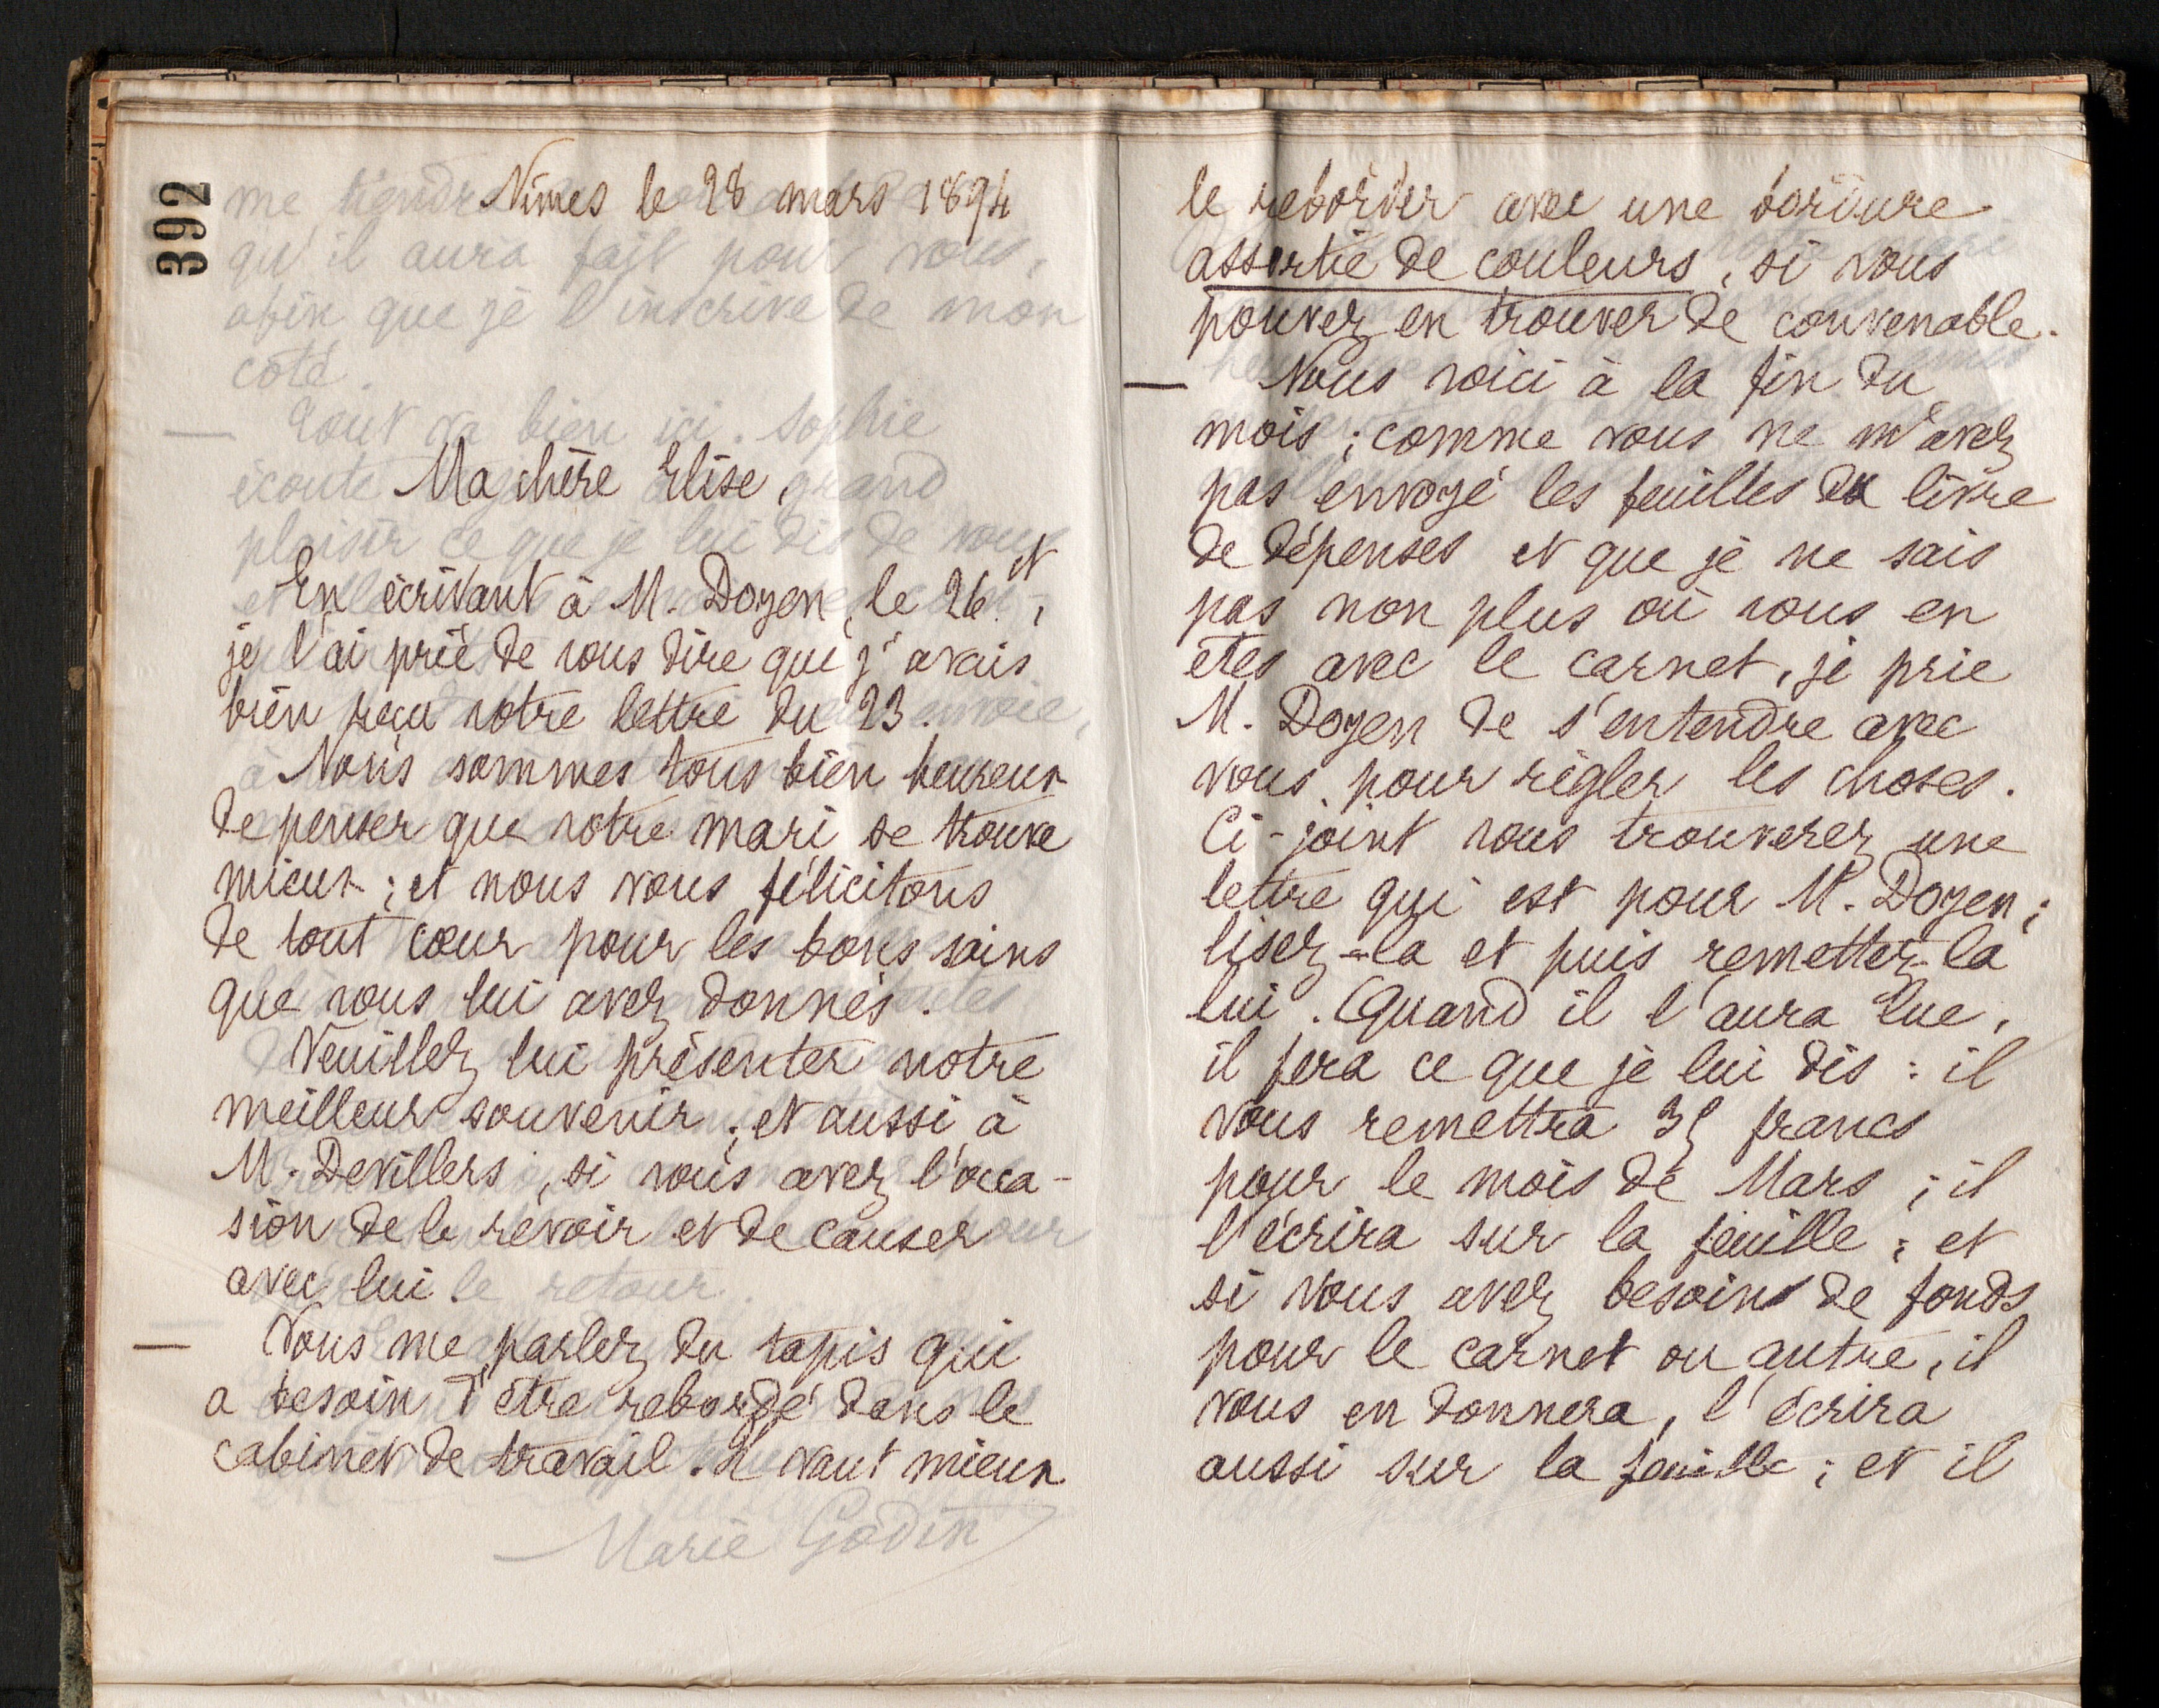 392
Nîmes le 28 mars 1894
Ma chère Elise,
En écrivant à M. Doyen, le 26 ct,
je l'ai prié de vous dire que j'avais
bien reçu votre lettre du 23.
Nous sommes tous bien heureux
de penser que votre mari se trouve
mieux ; et nous vous félicitons
de tout cœur pour les bons soins
que vous lui avez donnés.
Veuillez lui présenter notre
meilleur souvenir ; et aussi à
M. Devillers, si vous avez l'occa-
sion de le revoir et de causer
avec lui
— Vous me parlez du tapis qui
a besoin d'être rebordé dans le
cabinet de travail. Il vaut mieux
le reborder avec une bordure
assortie de couleurs, si vous
pouvez en trouver de convenable.
— Nous voici à la fin du
mois ; comme vous ne m'avez
pas envoyé les feuilles du livre
de dépenses et que je ne sais
pas non plus où vous en
êtes avec le carnet, je prie
M. Doyen de s'entendre avec
vous pour régler les choses.
Ci-joint vous trouverez une
lettre qui est pour M. Doyen ;
lisez-la et puis remettez-la
lui. Quand il l'aura lue,
il fera ce que je lui dis : il
vous remettra 35 francs
pour le mois de Mars ; il
l'écrira sur la feuille ; et
si vous avez besoin de fonds
pour le carnet ou autre, il
vous en donnera, l'écrira
aussi sur la feuille ; et il
me tiendra
qu'il aura fait pour vous,
afin que je l'inscrive de mon
côté.
— Tout va bien ici. Sophie
écoute grand
plaisir ce que je lui dis de vous
envoie,
le retour.
Marie Godin